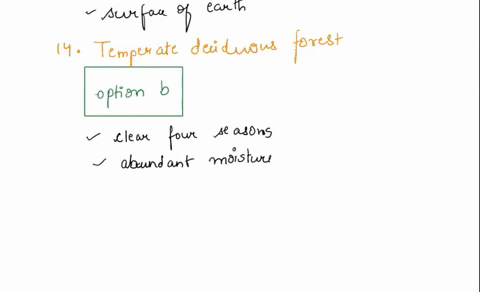 ✓ surface of earth
14. Temperate deciduous forest
option b
✓ clear four seasons
✓ abundant moisture